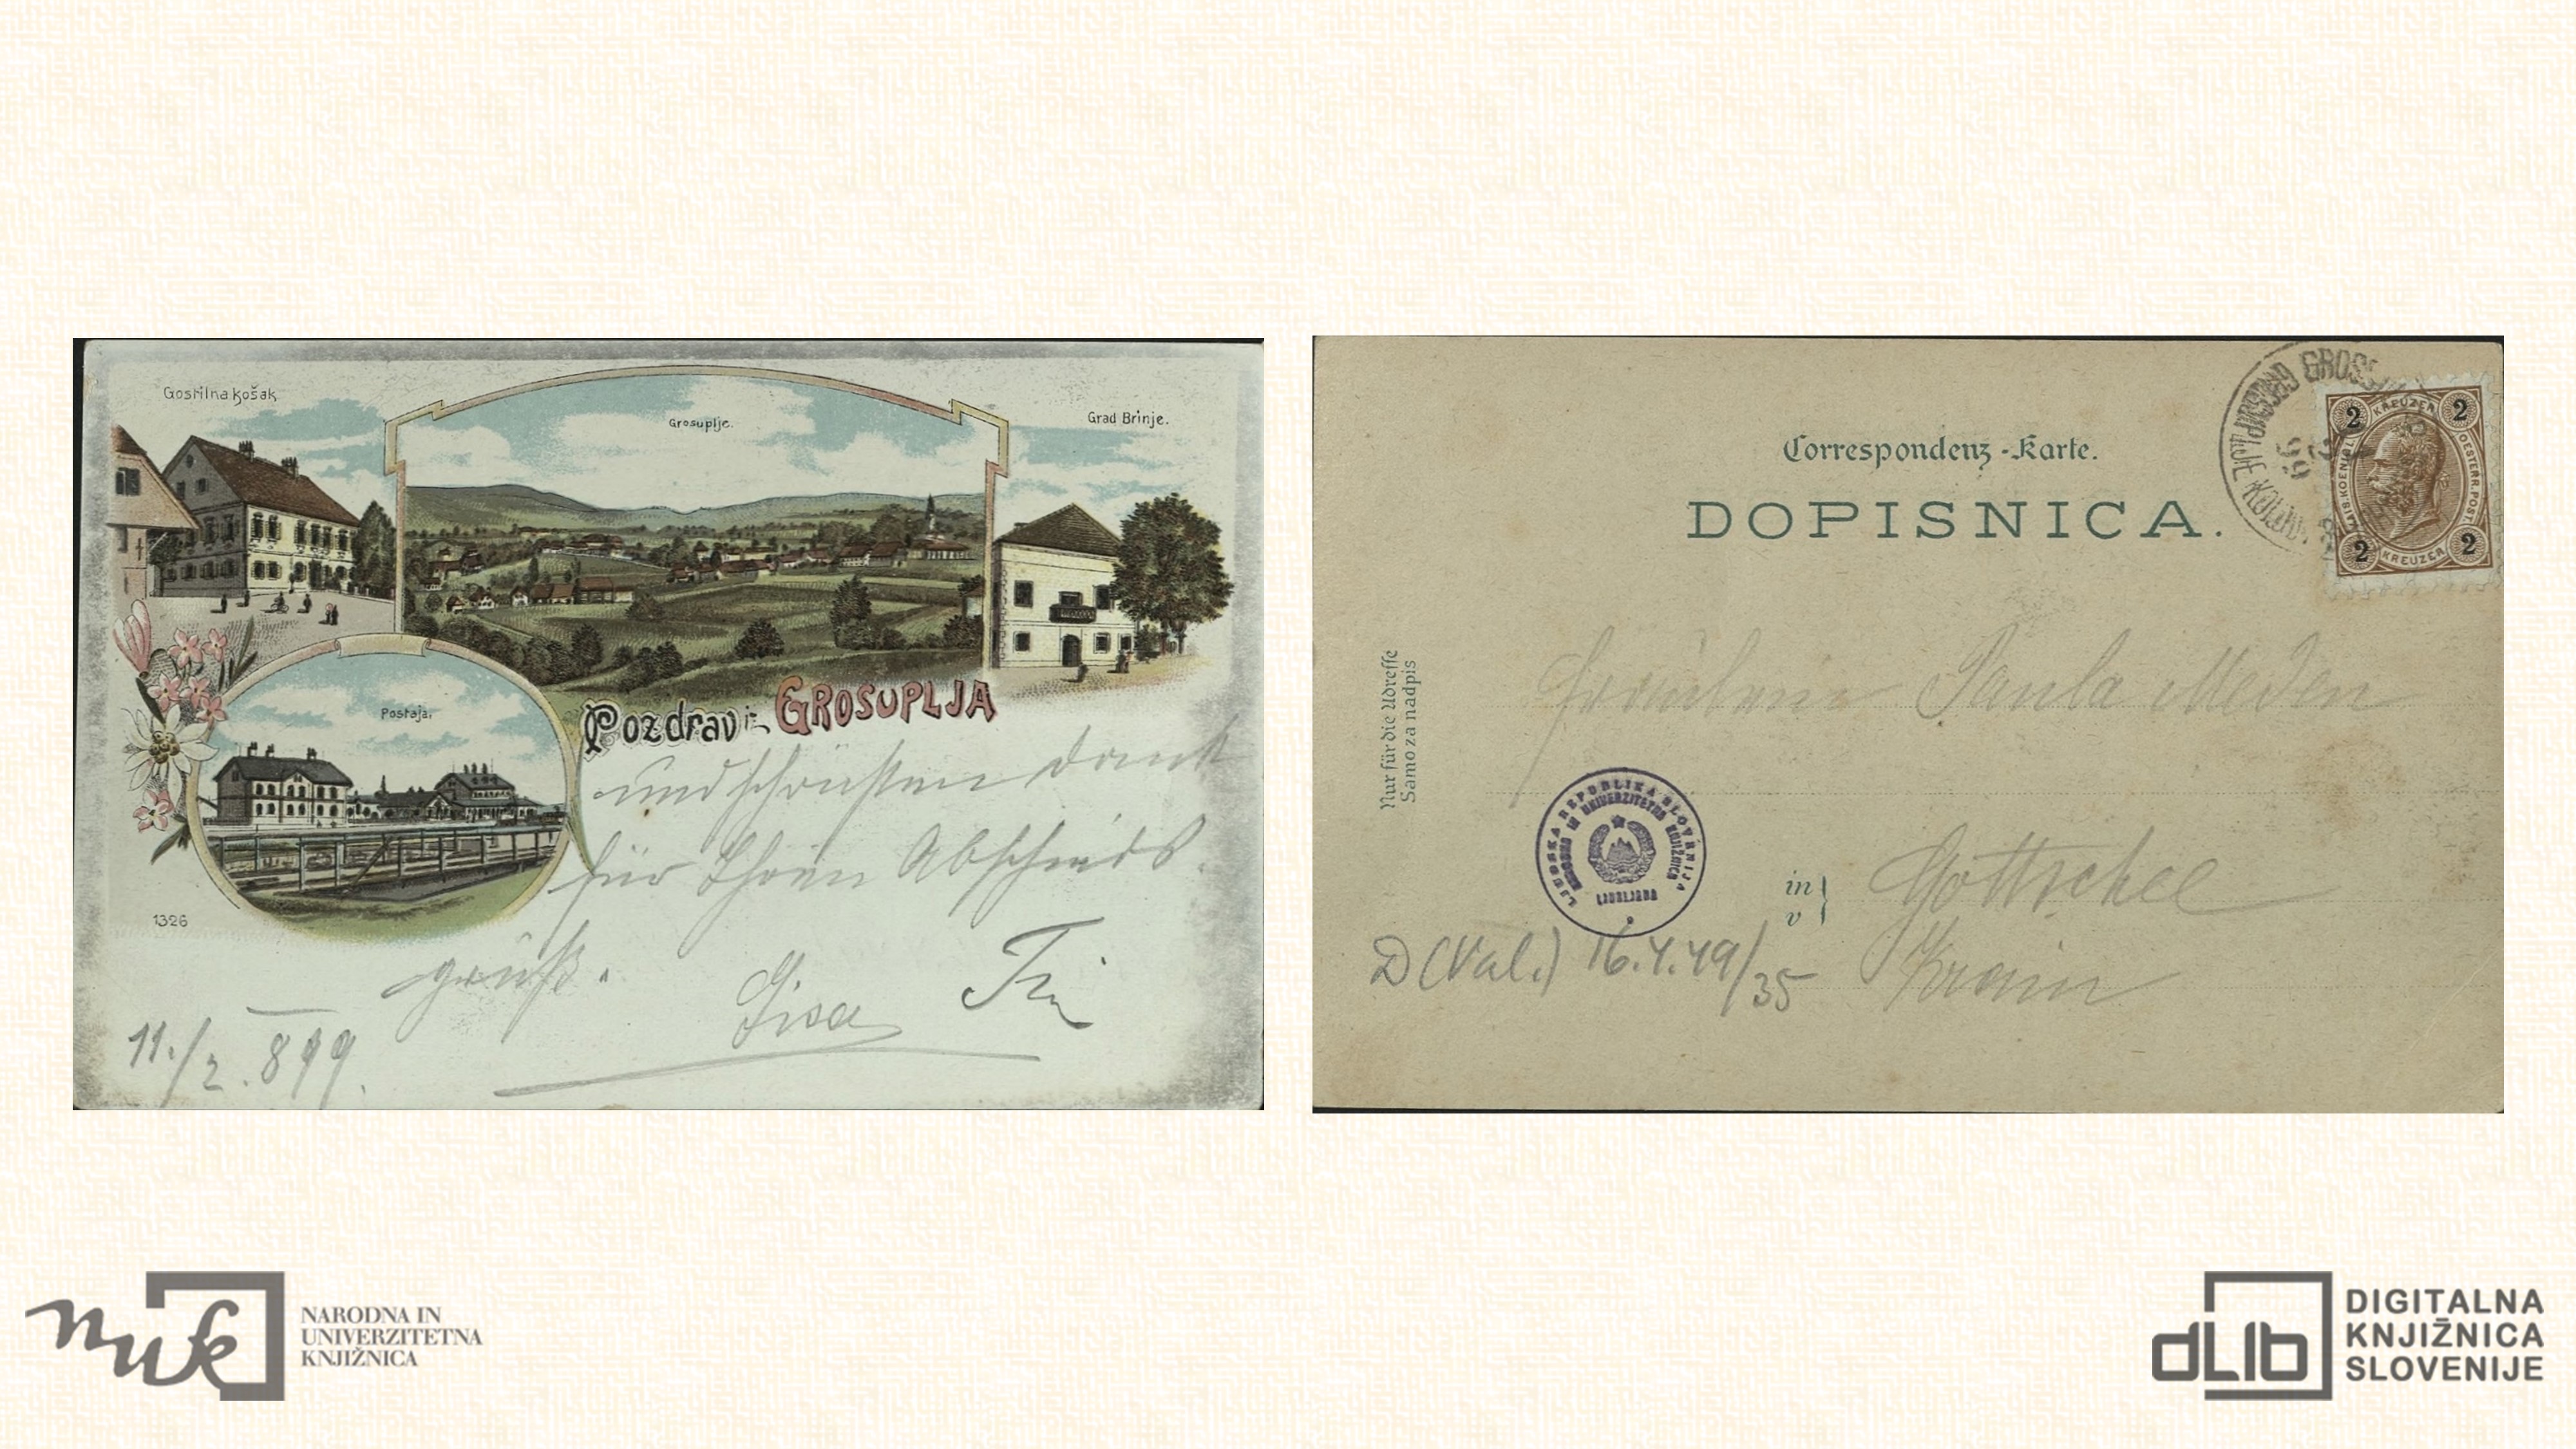 Gostilna Košak
Grosuplje.
Grad Brinje.
Postaja.
Pozdrav iz GROSUPLJA
und schönsten Dank
für Ihren Abschieds
gruß.
Gisa
1326
11./2. 899.
Correspondenz-Karte.
DOPISNICA.
GROSUPLJE
99
2 KREUZER 2
KAIS. KOENIGL. OESTERR. POST.
2 KREUZER 2
Nur für die Adresse
Samo za nadpis
Fräulein Paula Meden
in
v
Gottschee
Krain
LJUDSKA REPUBLIKA SLOVENIJA
NARODNA IN UNIVERZITETNA KNJIŽNICA
LJUBLJANA
D (Val.) 16.4.49/35
nuk
NARODNA IN
UNIVERZITETNA
KNJIŽNICA
dLib
DIGITALNA
KNJIŽNICA
SLOVENIJE